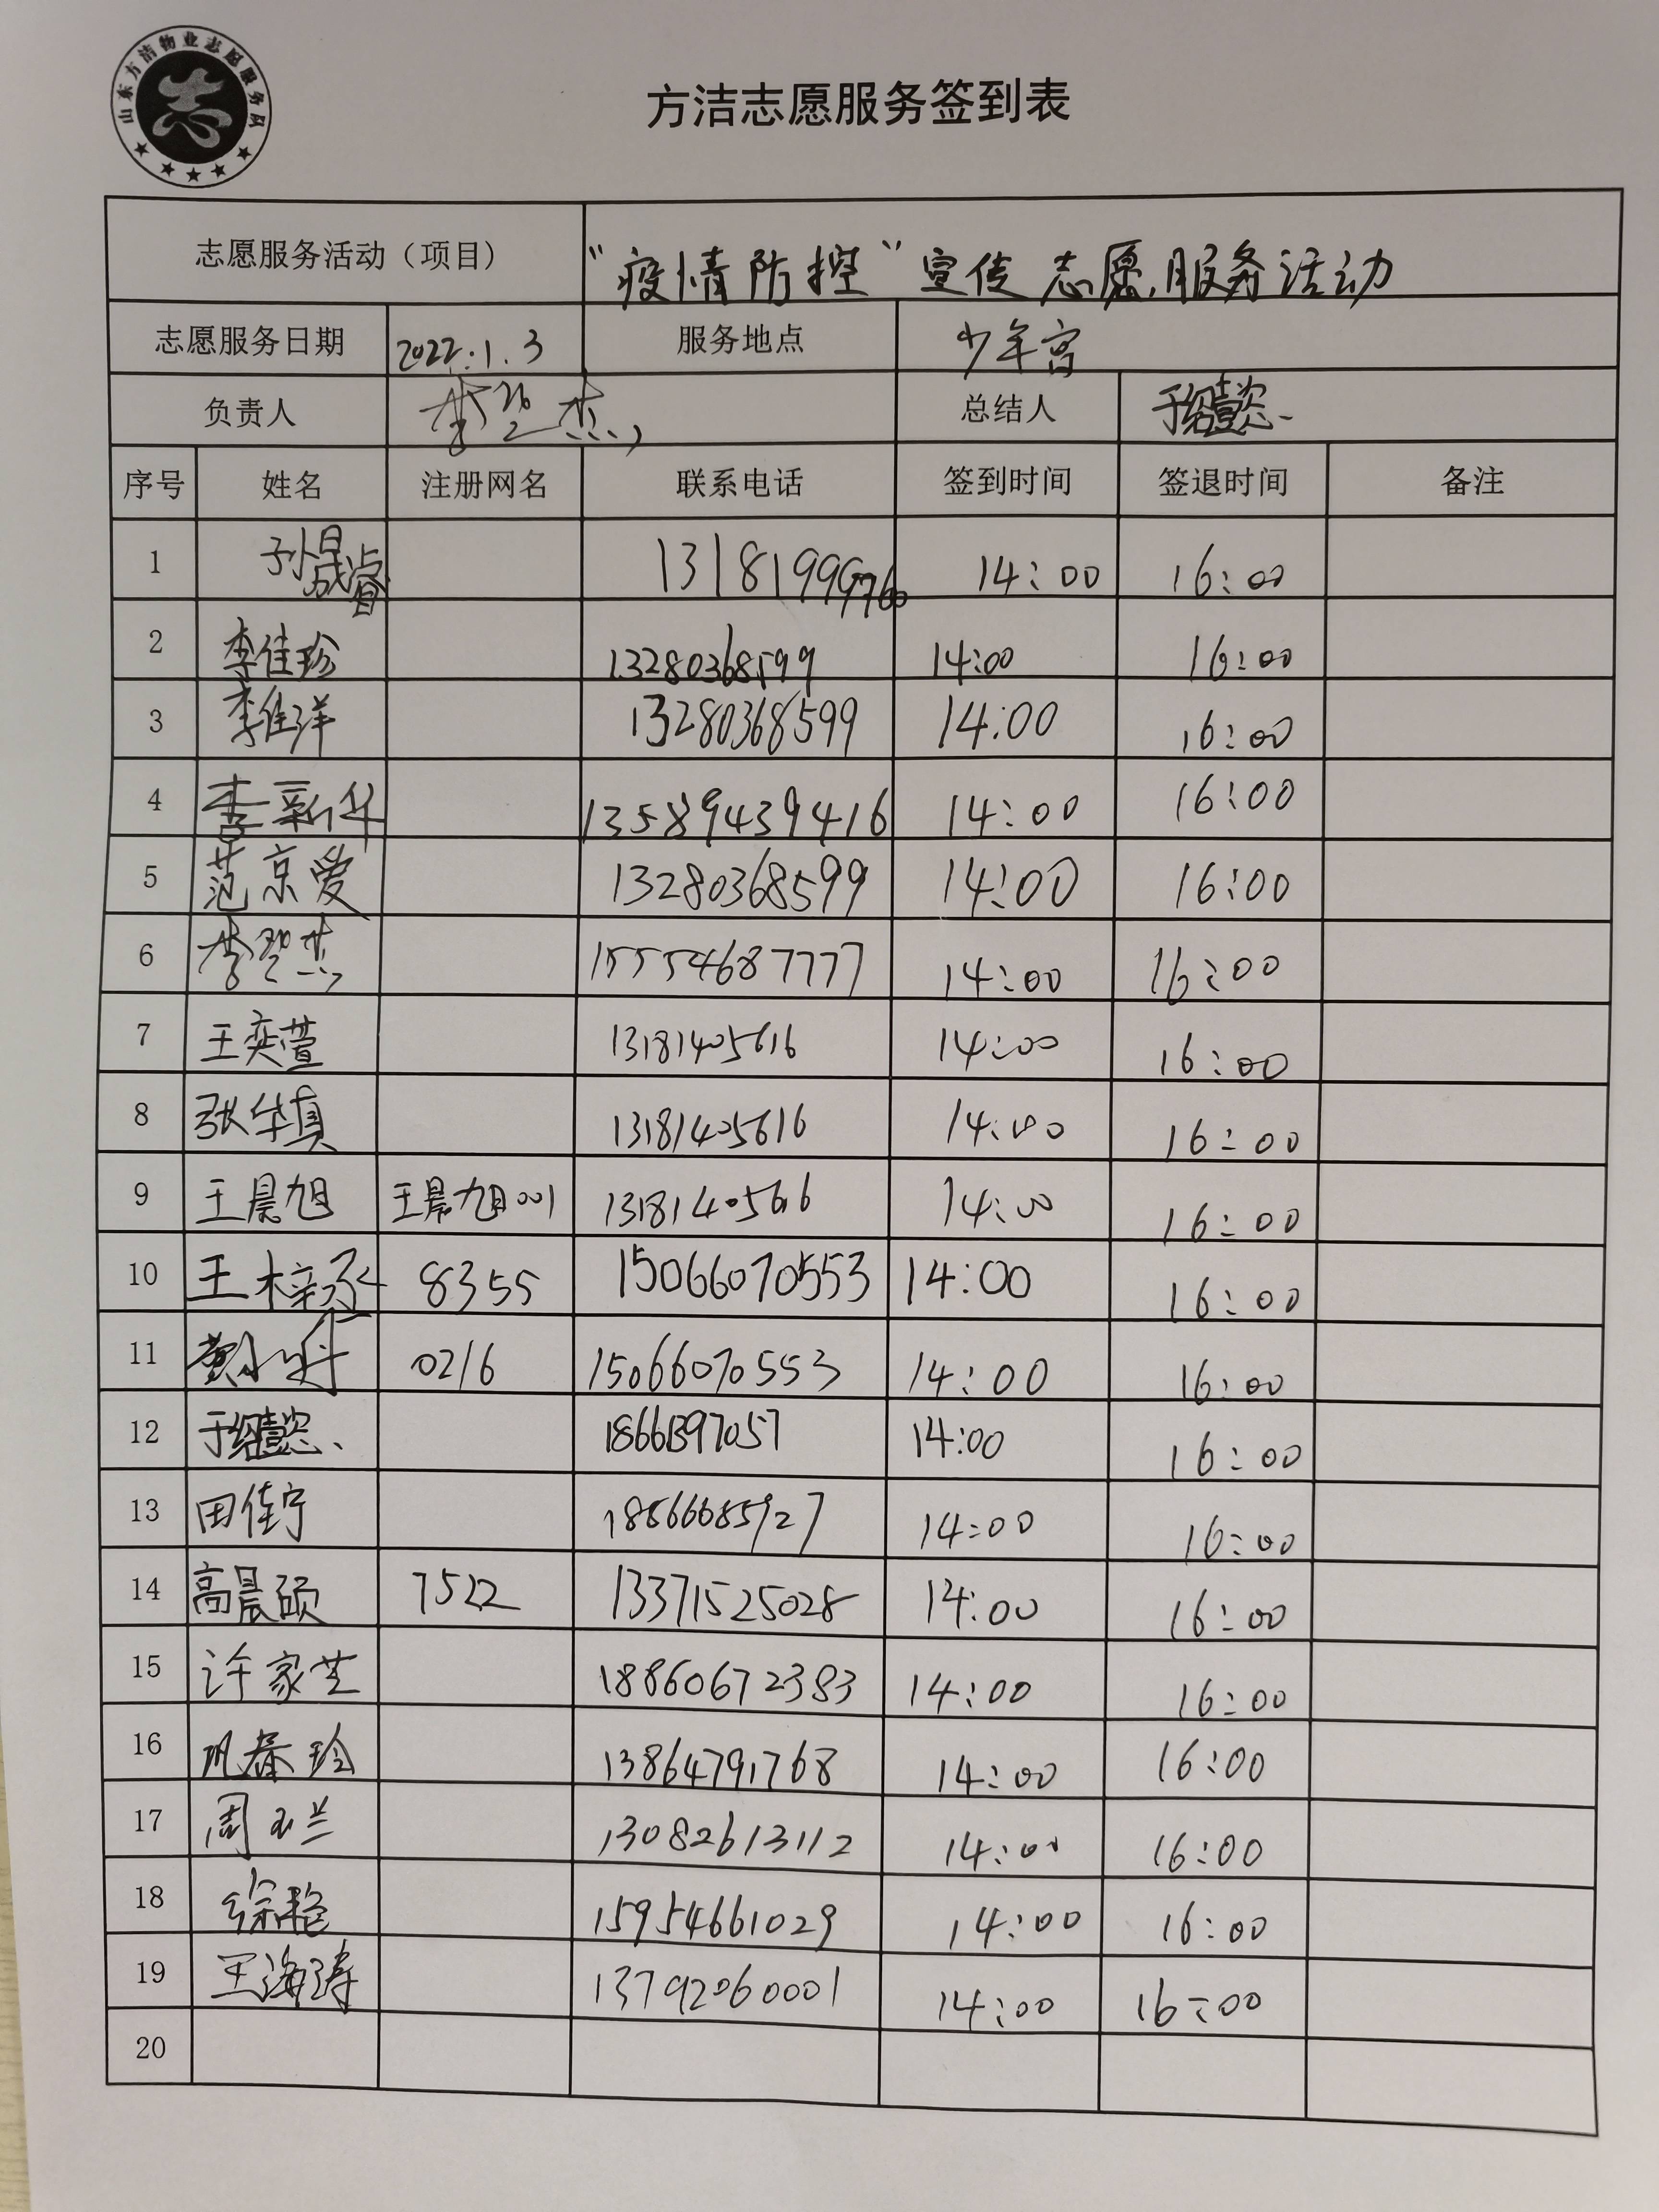 山东方洁物业志愿服务队
志
方洁志愿服务签到表
志愿服务活动（项目） “疫情防控”宣传志愿服务活动
志愿服务日期 2022.1.3 服务地点 少年宫
负责人 总结人
序号 姓名 注册网名 联系电话 签到时间 签退时间 备注
1 孙晟睿 13181999760 14:00 16:00
2 李佳珍 13280368599 14:00 16:00
3 李佳洋 13280368599 14:00 16:00
4 李新华 13589439416 14:00 16:00
5 范京爱 13280368599 14:00 16:00
6 15554687777 14:00 16:00
7 王奕萱 13181405616 14:00 16:00
8 张华真 13181405616 14:00 16:00
9 王晨旭 王晨旭001 13181405616 14:00 16:00
10 王梓丞 8355 15066070553 14:00 16:00
11 0216 15066070553 14:00 16:00
12 18661397057 14:00 16:00
13 田佳宁 18866685927 14:00 16:00
14 高晨硕 7522 13371525028 14:00 16:00
15 许家芝 18860672383 14:00 16:00
16 巩春玲 13864791768 14:00 16:00
17 周玉兰 13082613112 14:00 16:00
18 徐艳 15954661029 14:00 16:00
19 王海涛 13792060001 14:00 16:00
20